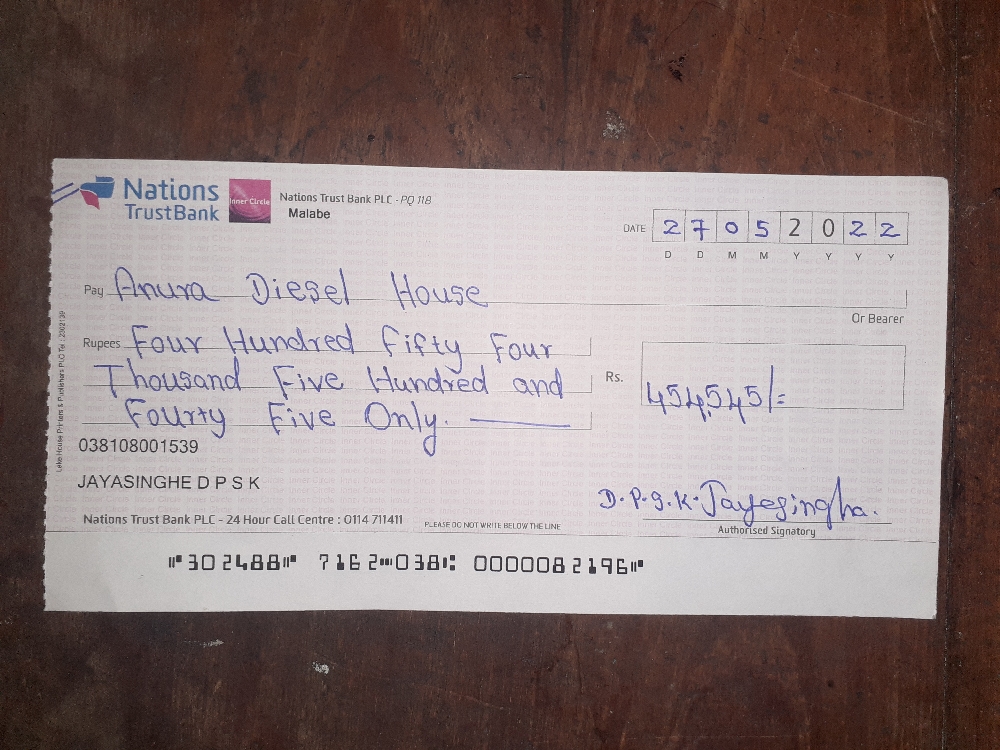 Nations
TrustBank
Inner Circle
Nations Trust Bank PLC - PQ 118
Malabe
DATE 2 7 0 5 2 0 2 2
D D M M Y Y Y Y
Pay Anura Diesel House
Or Bearer
Rupees Four Hundred Fifty Four
Thousand Five Hundred and
Fourty Five Only.
Rs. 454,545/=
038108001539
JAYASINGHE D P S K
D.P.S.K. Jayesingha.
Authorised Signatory
Nations Trust Bank PLC - 24 Hour Call Centre : 0114 711411
PLEASE DO NOT WRITE BELOW THE LINE
⑈302488⑈ 7162⑉038⑆ 0000082196⑈
Lake House Printers & Publishers PLC Tel : 2102139